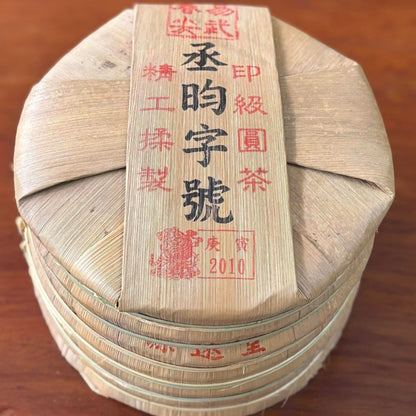 易武
春尖
印級圓茶
丞昀字號
精工揉製
庚寅
2010